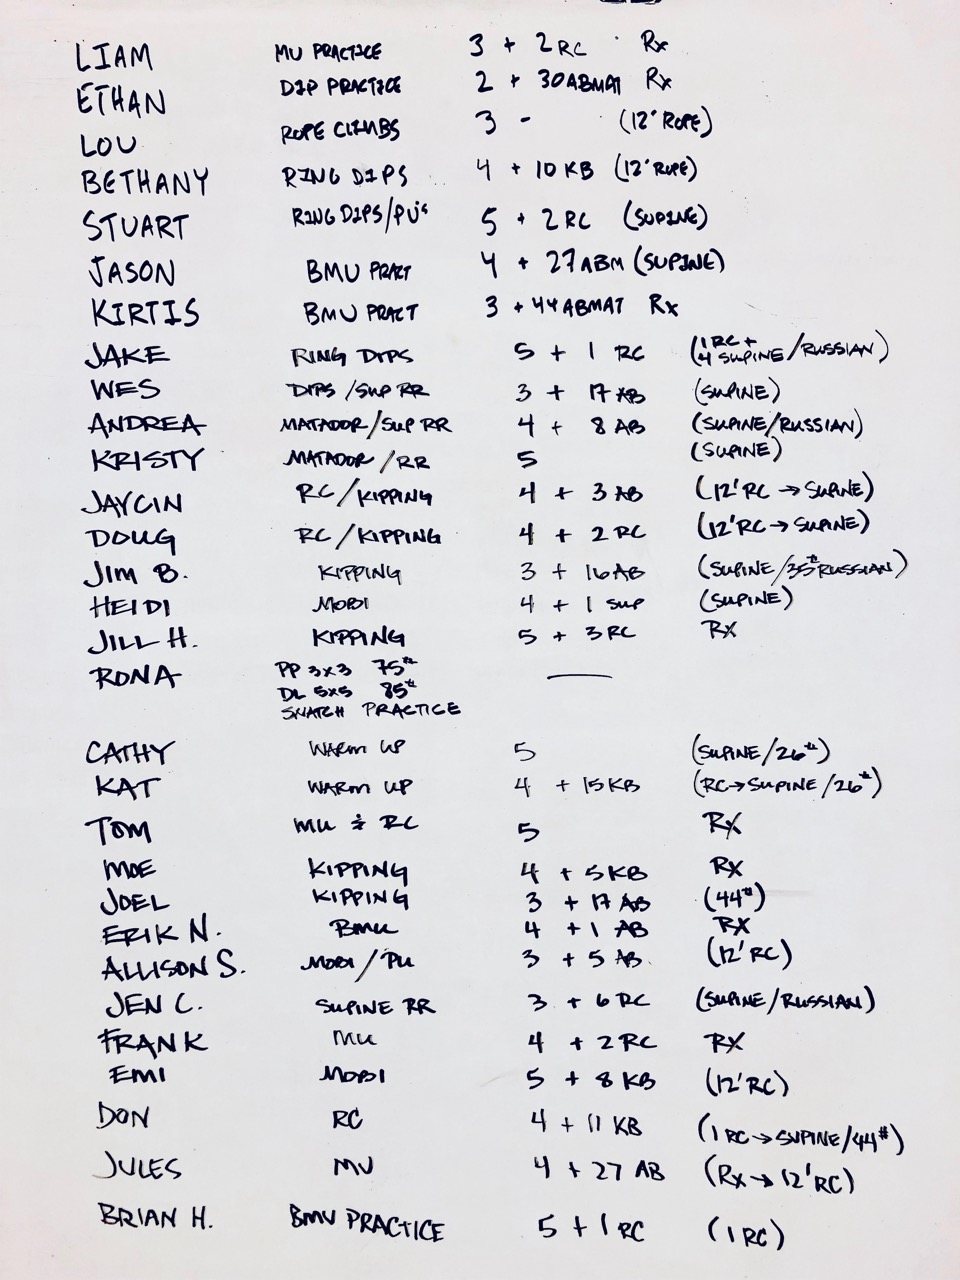 LIAM MU PRACTICE 3 + 2 RC Rx
ETHAN DIP PRACTICE 2 + 30 ABMAT Rx
LOU ROPE CLIMBS 3 - (12' ROPE)
BETHANY RING DIPS 4 + 10 KB (12' ROPE)
STUART RING DIPS/PU's 5 + 2 RC (SUPINE)
JASON BMU PRACT 4 + 27 ABM (SUPINE)
KIRTIS BMU PRACT 3 + 44 ABMAT Rx
JAKE RING DIPS 5 + 1 RC (1 RC + 4 SUPINE/RUSSIAN)
WES DIPS/SUP RR 3 + 17 AB (SUPINE)
ANDREA MATADOR/SUP RR 4 + 8 AB (SUPINE/RUSSIAN)
KRISTY MATADOR/RR 5 (SUPINE)
JAYCIN RC/KIPPING 4 + 3 AB (12' RC → SUPINE)
DOUG RC/KIPPING 4 + 2 RC (12' RC → SUPINE)
JIM B. KIPPING 3 + 16 AB (SUPINE/35# RUSSIAN)
HEIDI MOBI 4 + 1 SUP (SUPINE)
JILL H. KIPPING 5 + 3 RC RX
RONA PP 3x3 75# —
DL 5x5 85#
SNATCH PRACTICE
CATHY WARM UP 5 (SUPINE/26#)
KAT WARM UP 4 + 15 KB (RC → SUPINE/26#)
TOM MU & RC 5 RX
MOE KIPPING 4 + 5 KB RX
JOEL KIPPING 3 + 17 AB (44#)
ERIK N. BMU 4 + 1 AB RX
ALLISON S. MOBI/PU 3 + 5 AB. (12' RC)
JEN C. SUPINE RR 3 + 6 RC (SUPINE/RUSSIAN)
FRANK MU 4 + 2 RC RX
EMI MOBI 5 + 8 KB (12' RC)
DON RC 4 + 11 KB (1 RC → SUPINE/44#)
JULES MU 4 + 27 AB (Rx → 12' RC)
BRIAN H. BMU PRACTICE 5 + 1 RC (1 RC)